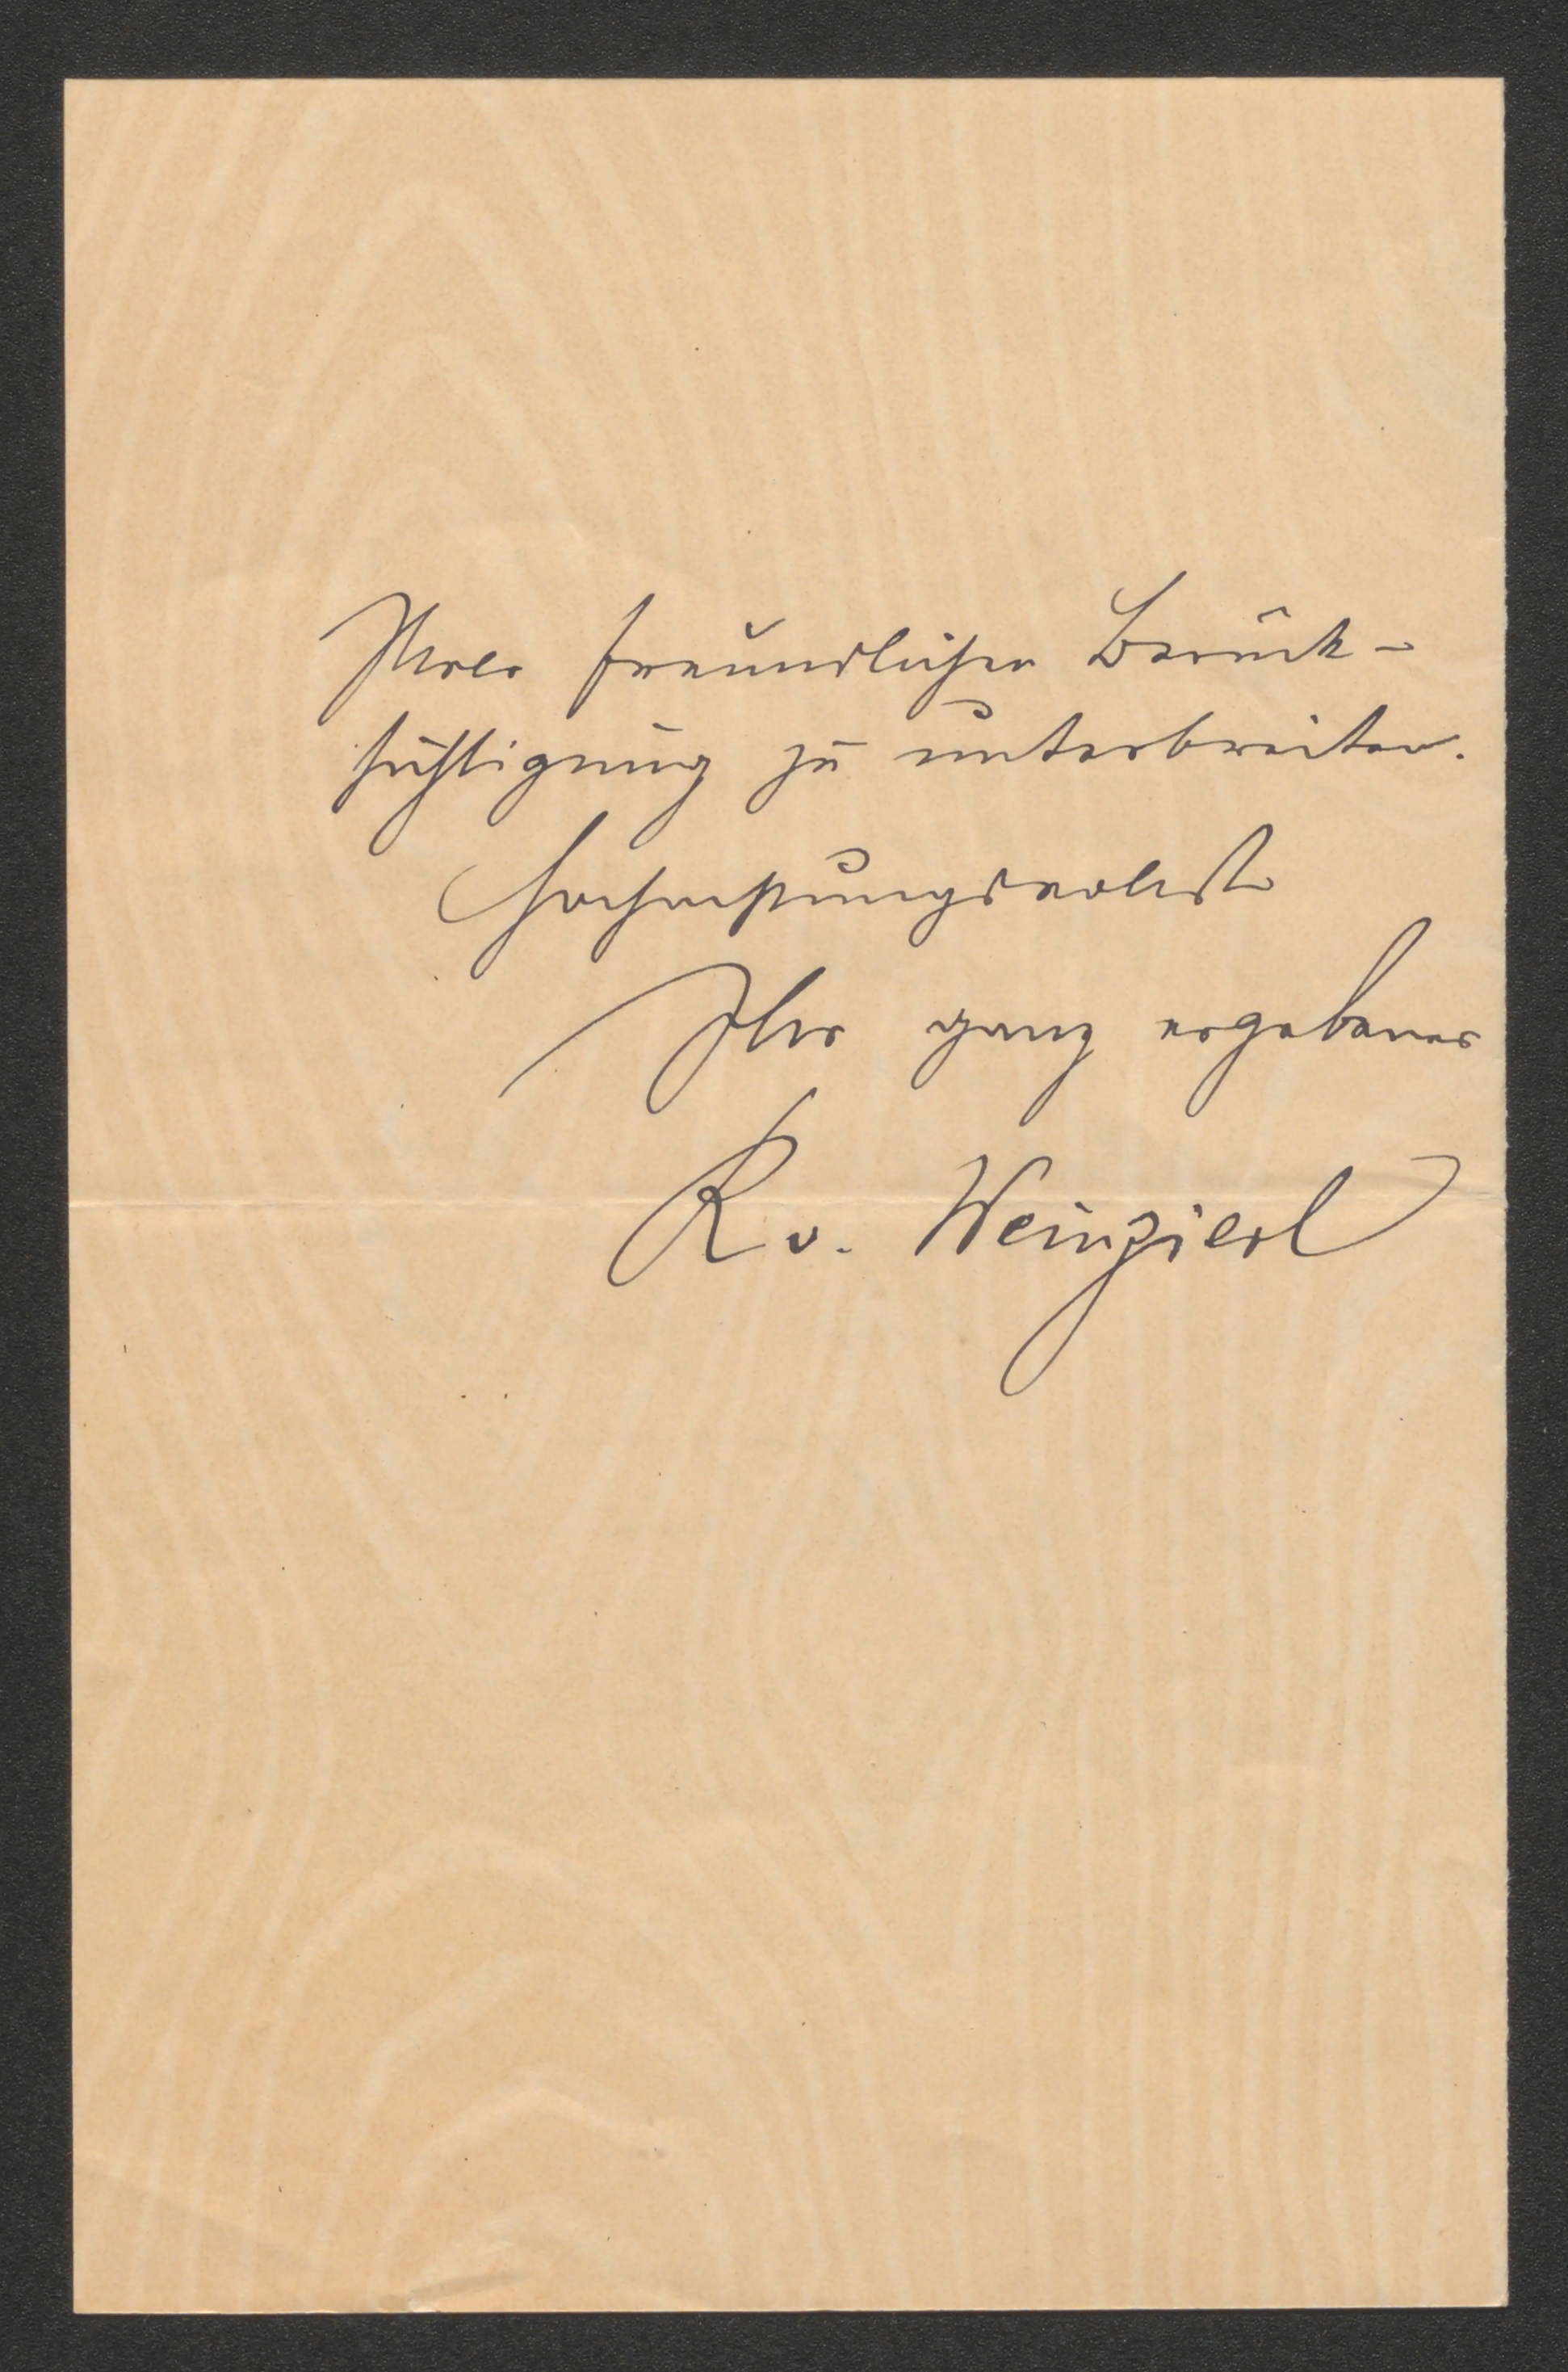 Ihrer freundlichen Berück-
sichtigung zu unterbreiten.
Hochachtungsvollst
Ihr ganz ergebener
R v. Weinzierl